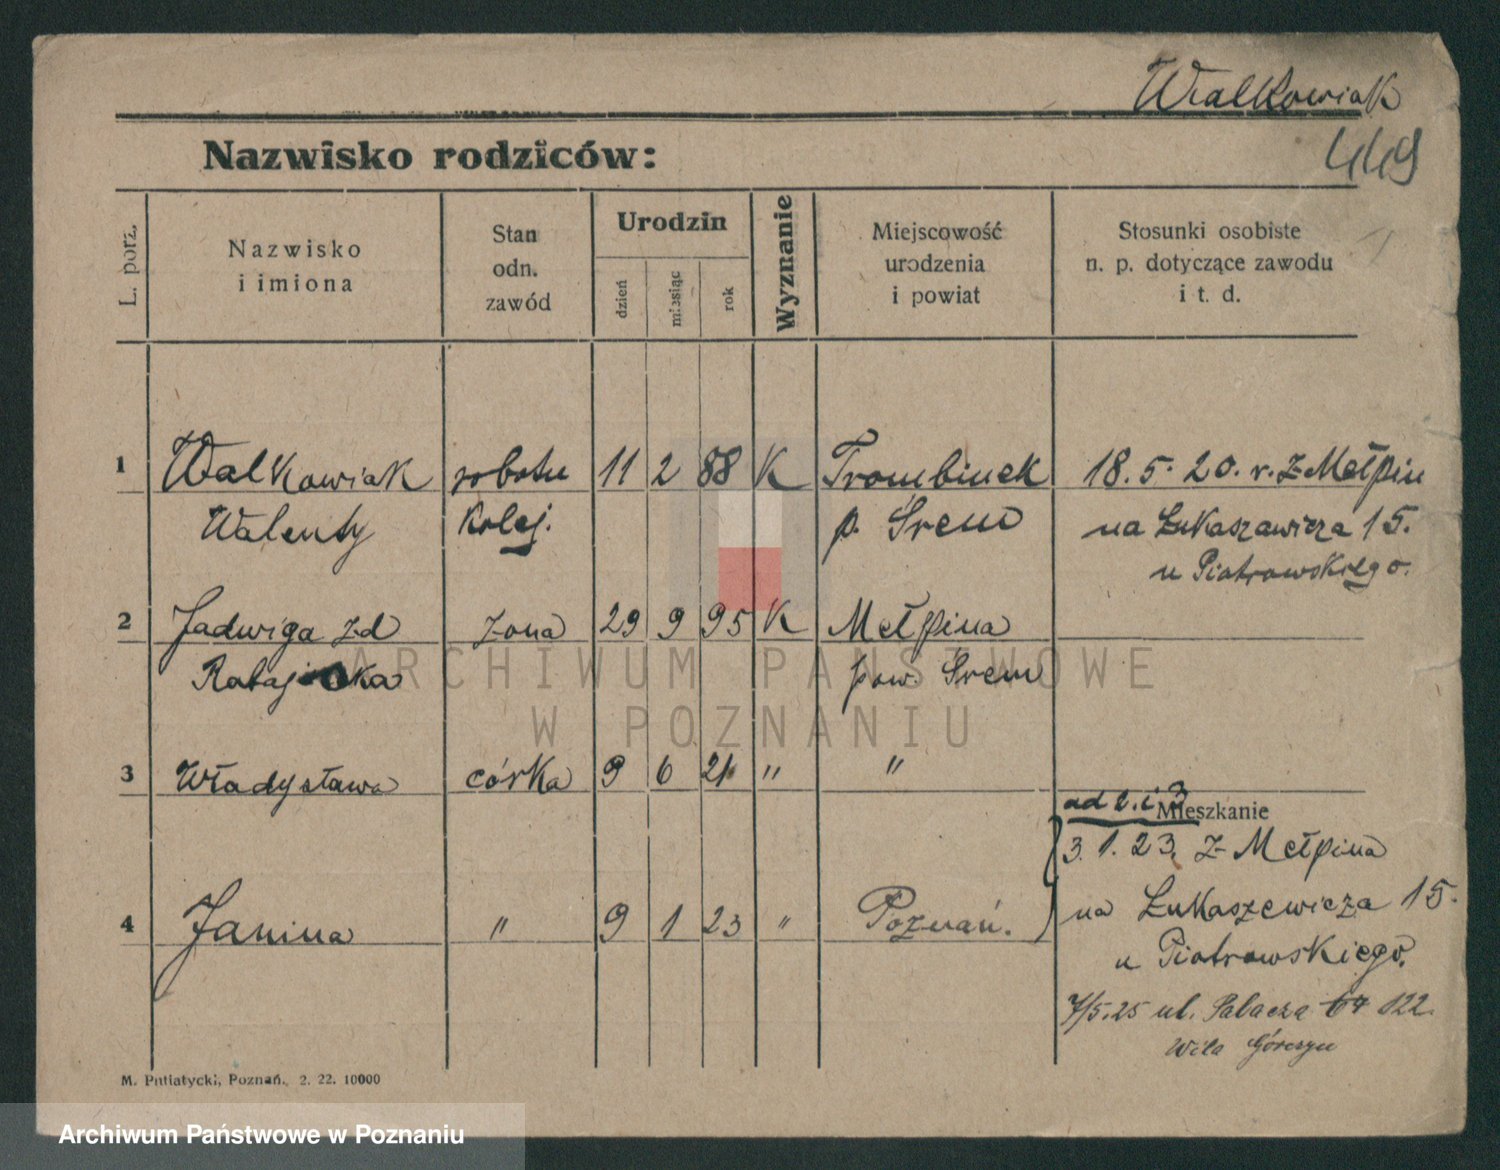 Walkowiak
449
Nazwisko rodziców:
L. porz.
Nazwisko
i imiona
Stan
odn.
zawód
Urodzin
dzień
miesiąc
rok
Wyznanie
Miejscowość
urodzenia
i powiat
Stosunki osobiste
n. p. dotyczące zawodu
i t. d.
1 Walkowiak robotn 11 2 88 K Trombinek 18.5.20. v. z Mełpin
Walenty kolej. p. Śrem na Łukaszawicza 15.
u Piotrowskiego.
2 Jadwiga zd żona 29 9 95 K Mełpina
Ratajska pow. Śrem
3 Władysława córka 9 6 21 " "
ad 2. i 3
Mieszkanie
3.1.23. z Mełpina
4 Janina " 9 1 23 " Poznań. na Łukaszewicza 15.
u Piotrowskiego.
7/5.25 ul. Palacza 64 122.
Wila Górczyn
M. Putiatycki, Poznań. 2. 22. 10000
ARCHIWUM PAŃSTWOWE
W POZNANIU
Archiwum Państwowe w Poznaniu